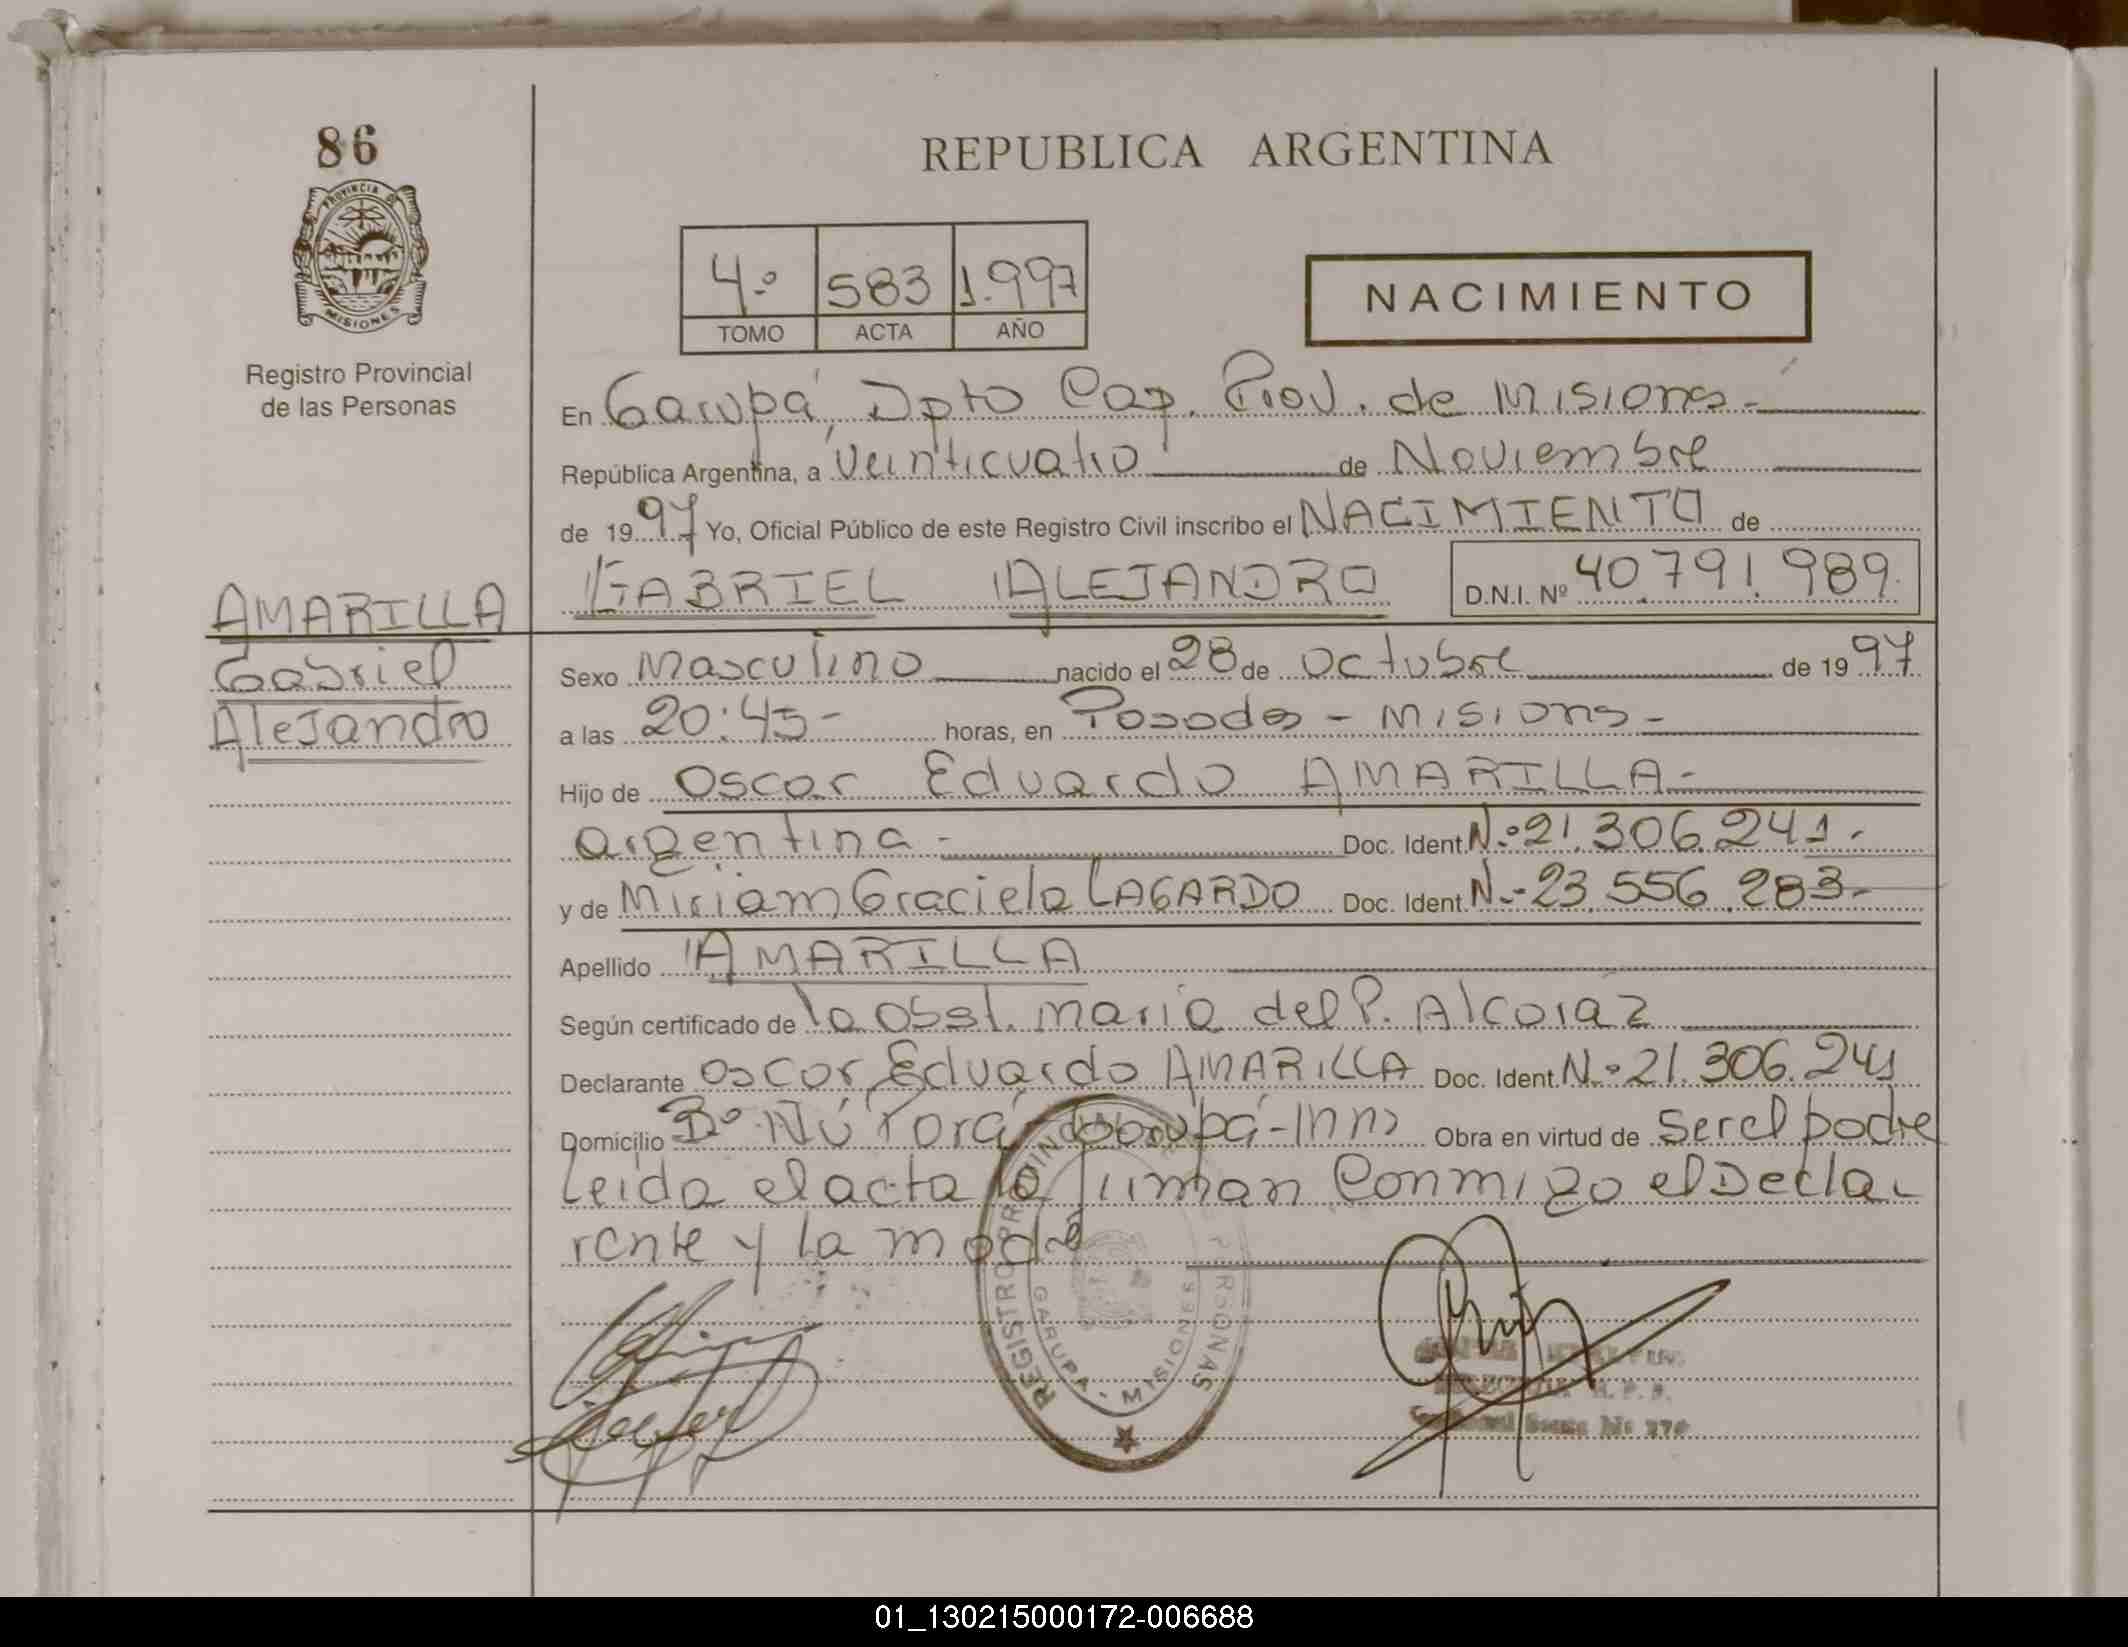 86
REPUBLICA ARGENTINA
PROVINCIA DE
MISIONES
Registro Provincial
de las Personas
4.º 583 1.997
TOMO ACTA AÑO
NACIMIENTO
En Garupá, Dpto Cap. Prov. de Misiones.-
República Argentina, a veinticuatro de Noviembre
de 1997 Yo, Oficial Público de este Registro Civil inscribo el NACIMIENTO de
GABRIEL ALEJANDRO D.N.I. Nº 40.791.989.
AMARILLA
Gabriel
Alejandro
Sexo Masculino nacido el 28 de octubre de 1997
a las 20:45- horas, en Posadas - Misiones-
Hijo de Oscar Eduardo AMARILLA-
argentina- Doc. Ident. N.º 21.306.241.
y de Miriam Graciela LAGARDO Doc. Ident. N.- 23.556.283-
Apellido AMARILLA
Según certificado de la Obst. Maria del P. Alcoraz
Declarante Oscar Eduardo AMARILLA Doc. Ident. N.º 21.306.241
Domicilio Bº Ñú Porá Garupá-Mnes Obra en virtud de ser el padre
Leida el acta la firman conmigo el Decla-
rante y la madre
REGISTRO PROVINCIAL PERSONAS
GARUPA - MISIONES
01_130215000172-006688